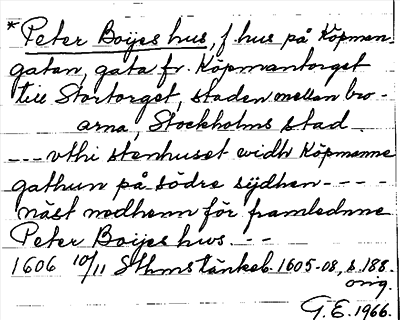 *Peter Boijes hus, f. hus på Köpman-
gatan, gata fr. Köpmantorget
till Stortorget, staden mellan bro-
arna, Stockholms stad.
--- uthi stenhuset widh Köpmanne
gathun på södre sijdhen ----
näst nedhenn för framlednne
Peter Boijes hws. --
1606 10/11 Sthms tänkeb. 1605-08, s. 188.
orig.
G.E. 1966.